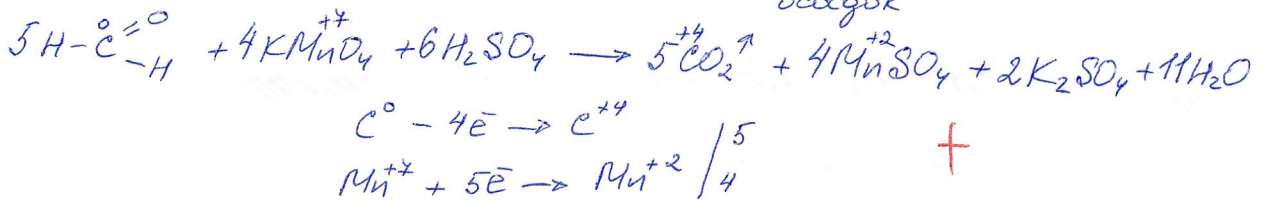 осадок
5H-C⁰(=O)-H + 4KMn⁺⁷O₄ + 6H₂SO₄ → 5C⁺⁴O₂↑ + 4Mn⁺²SO₄ + 2K₂SO₄ + 11H₂O
C⁰ - 4ē → C⁺⁴ | 5
Mn⁺⁷ + 5ē → Mn⁺² | 4
+